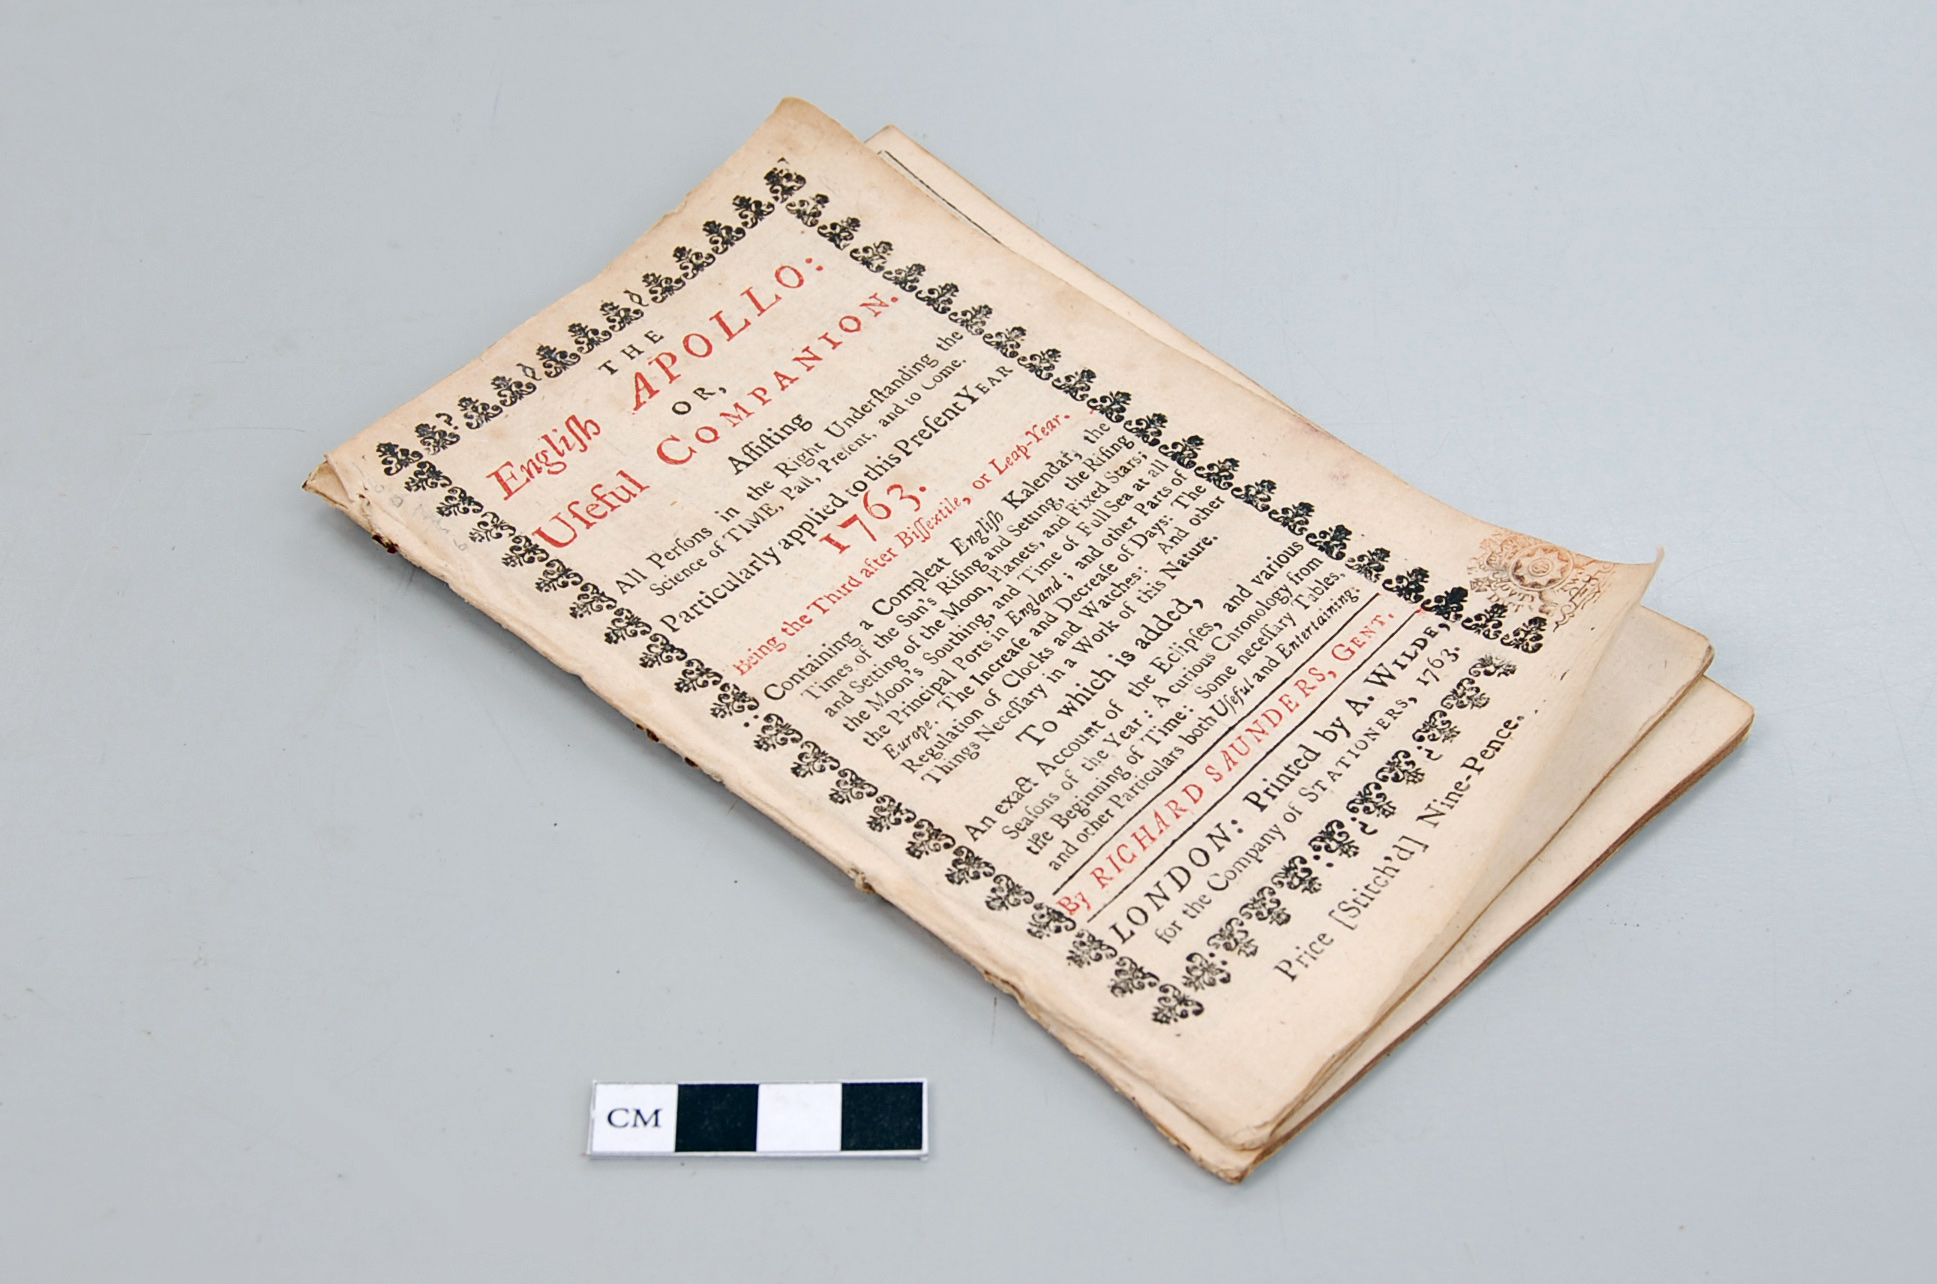 THE
Engliſh APOLLO:
OR,
Uſeful COMPANION.
Aſſiſting
All Perſons in the Right Underſtanding the
Science of TIME, Paſt, Preſent, and to Come.
Particularly applied to this Preſent YEAR
1763.
Being the Third after Biſſextile, or Leap-Year.
Containing a Compleat Engliſh Kalendar, the
Times of the Sun's Riſing and Setting, the Riſing
and Setting of the Moon, Planets, and Fixed Stars;
the Moon's Southing, and Time of Full Sea at all
the Principal Ports in England; and other Parts of
Europe. The Increaſe and Decreaſe of Days: The
Regulation of Clocks and Watches: And other
Things Neceſſary in a Work of this Nature.
To which is added,
An exact Account of the Eclipſes, and various
Seaſons of the Year: A curious Chronology from
the Beginning of Time: Some neceſſary Tables,
and other Particulars both Uſeful and Entertaining.
By RICHARD SAUNDERS, GENT.
LONDON: Printed by A. WILDE,
for the Company of STATIONERS, 1763.
Price [Stitch'd] Nine-Pence.
CM